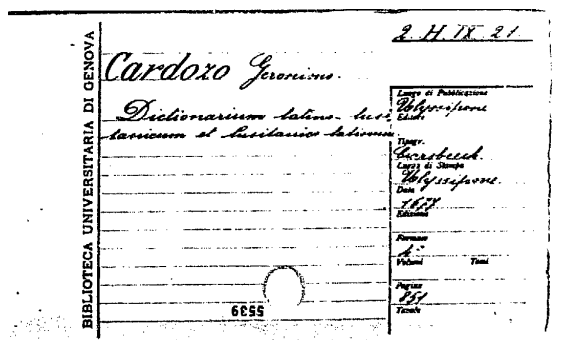 BIBLIOTECA UNIVERSITARIA DI GENOVA
2. H. IX. 21
Cardozo Geronimo.
Dictionarium latino-lusi
tanicum et lusitanico latinum
Luogo di Pubblicazione
Ulyssipone
Editore
Tipogr.
Luogo di Stampa
Ulyssipone.
Data
1677
Edizione
Formato
4°
Volumi Tomi
Pagine
851
Tavole
5539